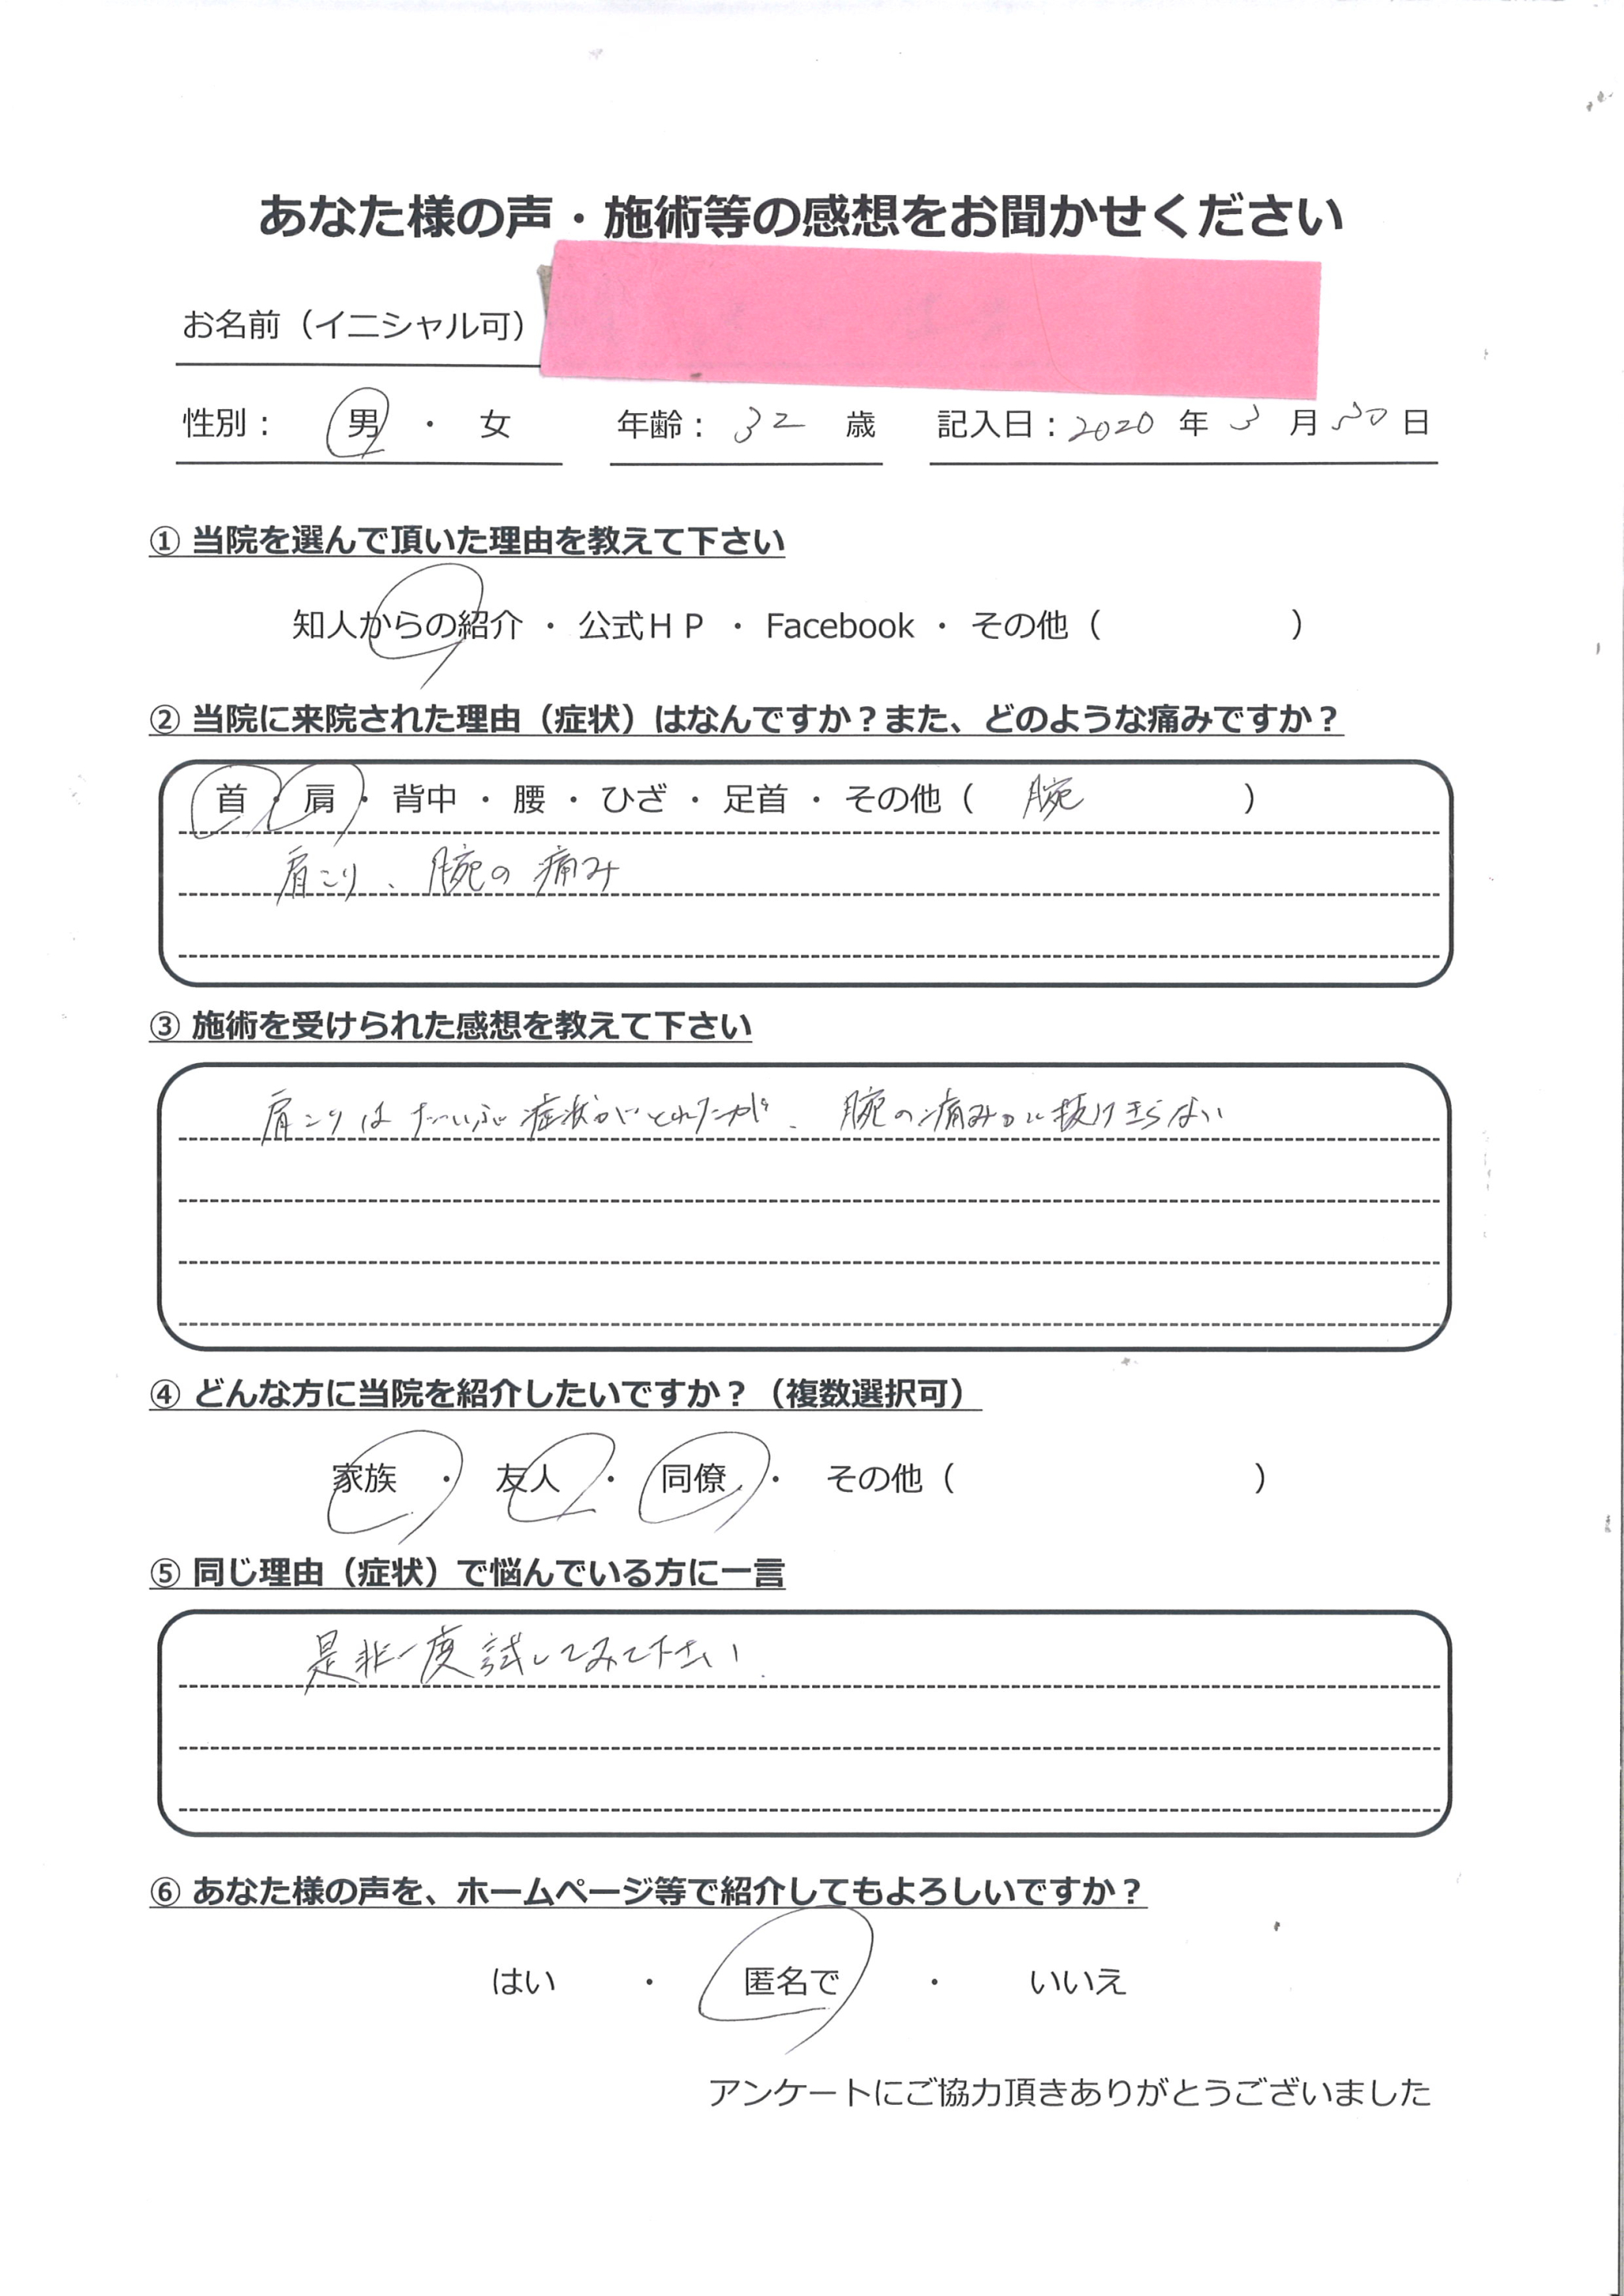 あなた様の声・施術等の感想をお聞かせください
お名前（イニシャル可）
性別： 男 ・ 女 年齢： 32 歳 記入日：2020 年 3 月 30 日
① 当院を選んで頂いた理由を教えて下さい
知人からの紹介 ・ 公式ＨＰ ・ Facebook ・ その他（ ）
② 当院に来院された理由（症状）はなんですか？また、どのような痛みですか？
首 ・ 肩 ・ 背中 ・ 腰 ・ ひざ ・ 足首 ・ その他（ 腕 ）
肩こり、腕の痛み
③ 施術を受けられた感想を教えて下さい
肩こりはだいぶ症状がとれたが、腕の痛みが抜けきらない
④ どんな方に当院を紹介したいですか？（複数選択可）
家族 ・ 友人 ・ 同僚 ・ その他（ ）
⑤ 同じ理由（症状）で悩んでいる方に一言
是非一度試してみて下さい.
⑥ あなた様の声を、ホームページ等で紹介してもよろしいですか？
はい ・ 匿名で ・ いいえ
アンケートにご協力頂きありがとうございました